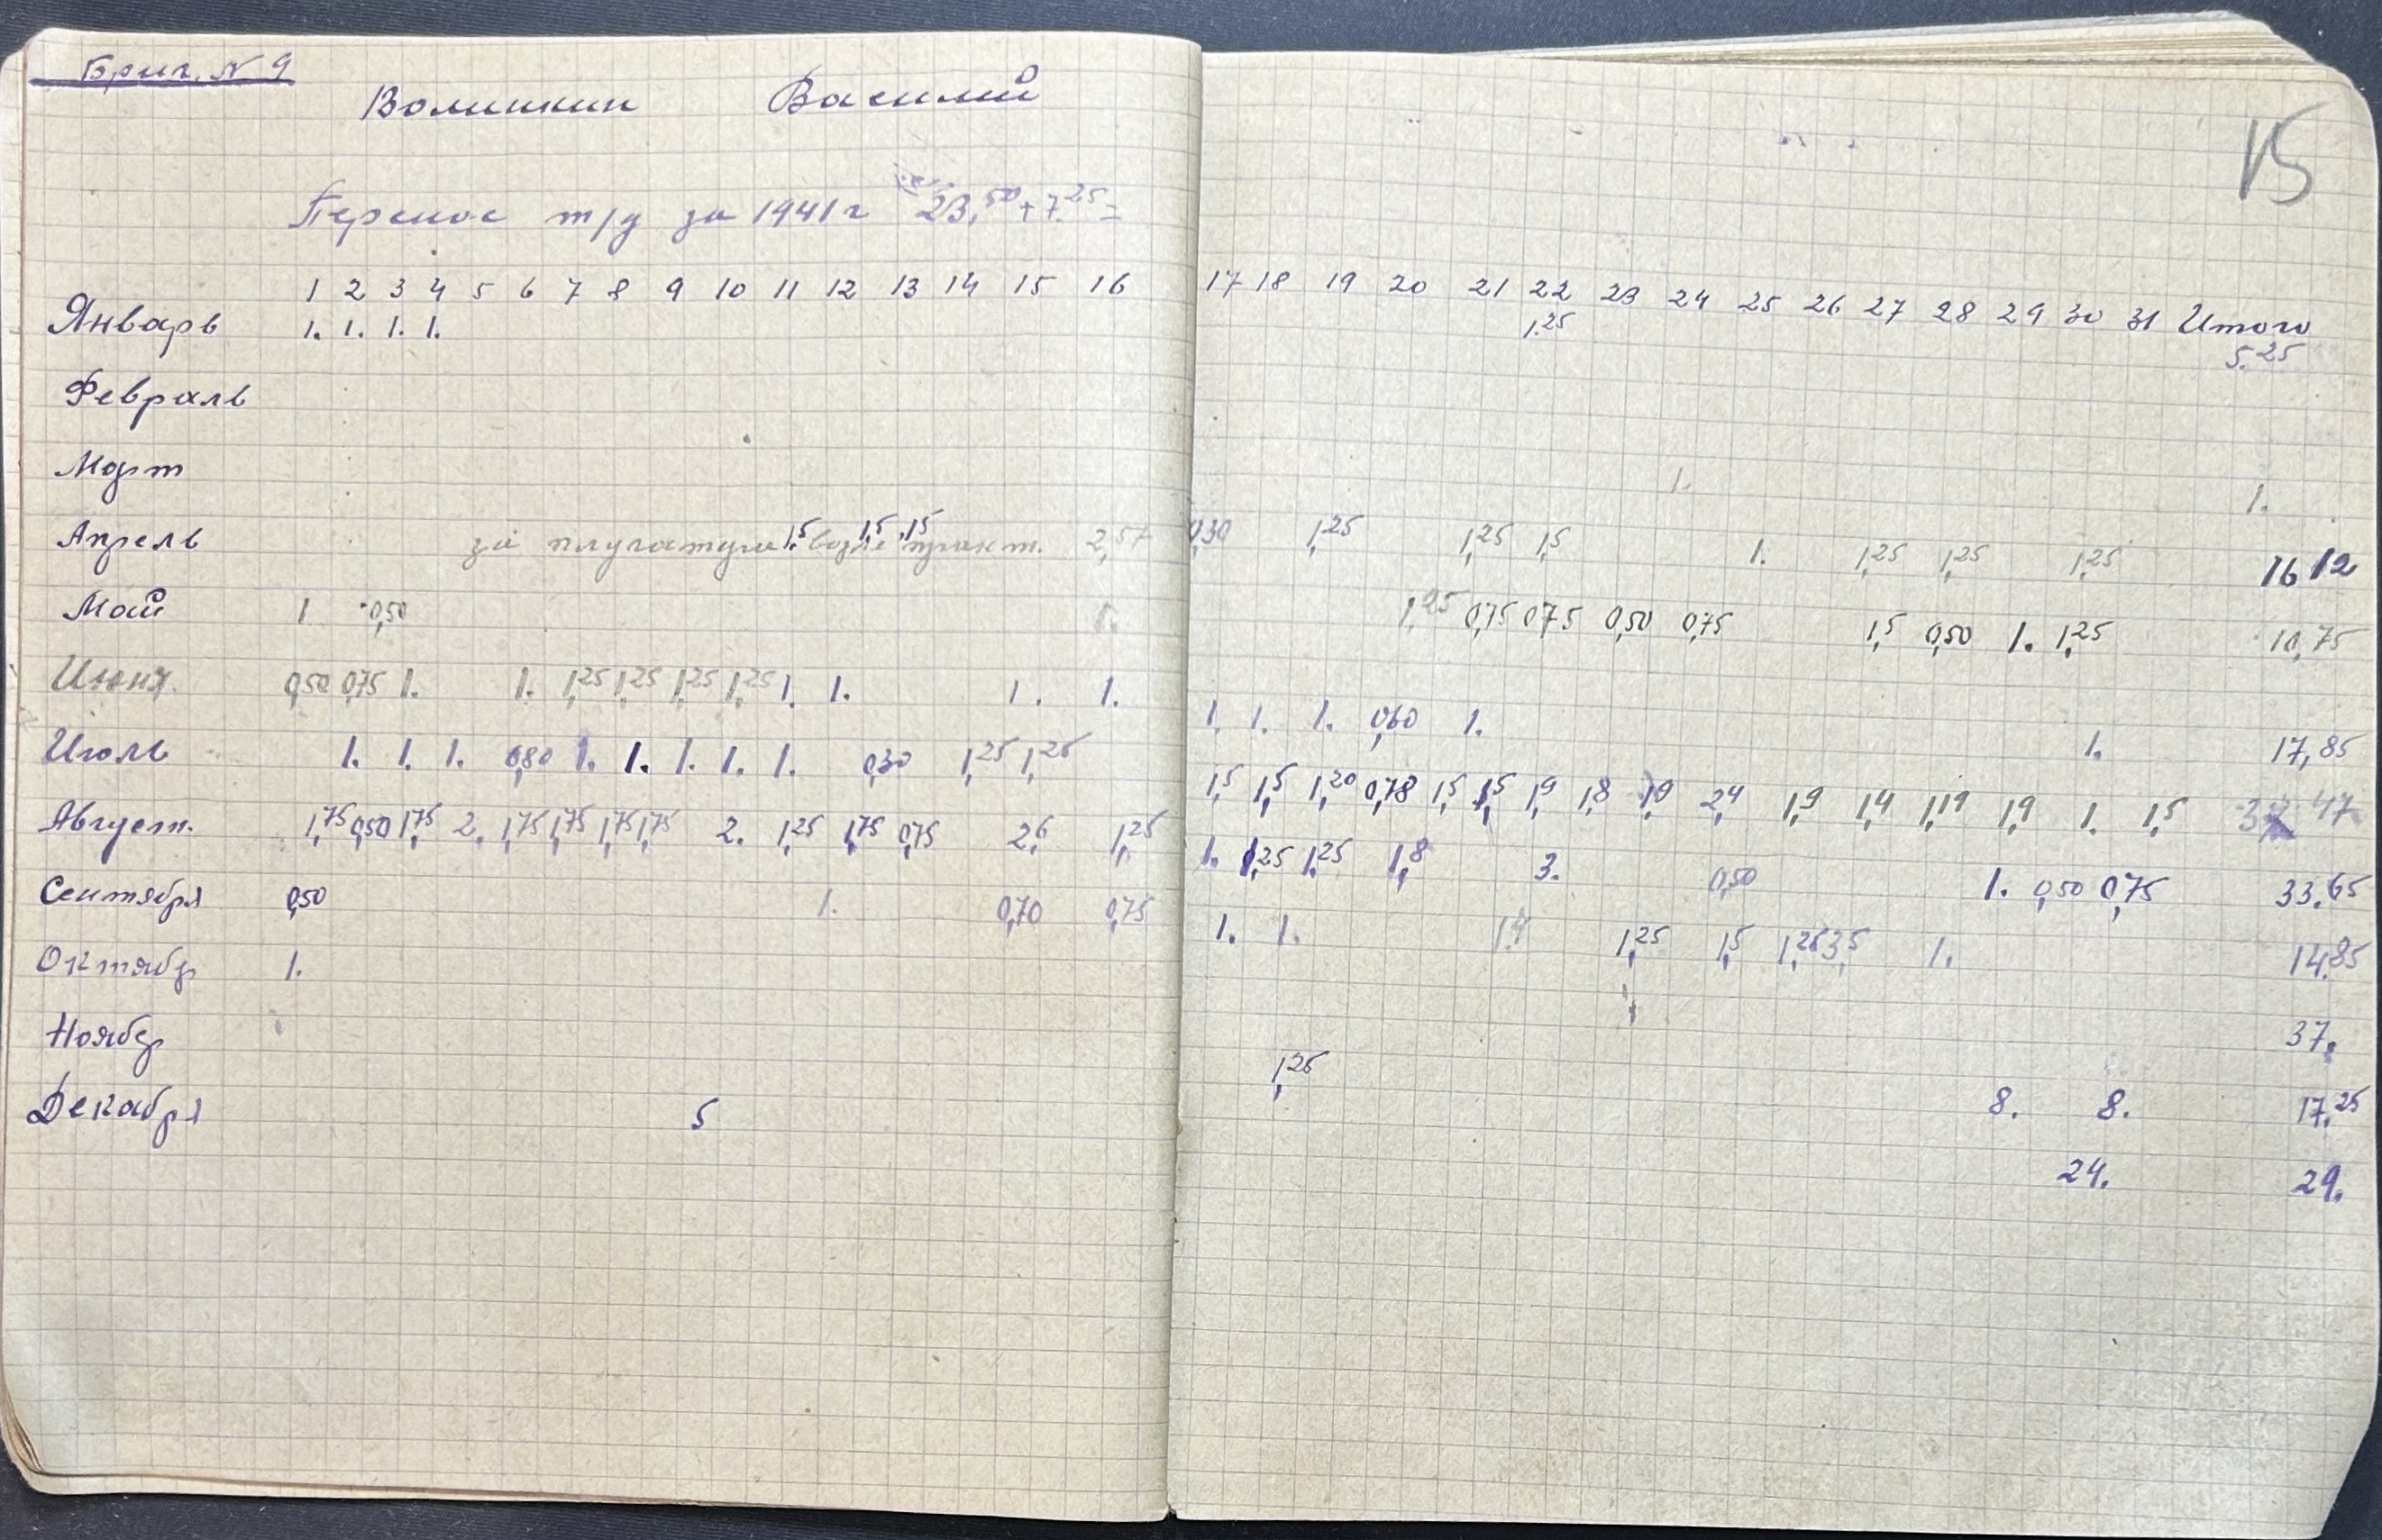 Бриг. № 9
15
Волинкин Василий
Перенос т/д за 1941 г 23,50 + 7.25 =
1 2 3 4 5 6 7 8 9 10 11 12 13 14 15 16 17 18 19 20 21 22 23 24 25 26 27 28 29 30 31 Итого
Январь 1. 1. 1. 1. 1.25 5.25
Февраль
Март 1. 1.
Апрель за 1,5 1,5 1,5 2,57 0,30 1,25 1,25 1,5 1. 1,25 1,25 1,25 16 12
Май 1 0,50 1. 1,25 0,75 0,75 0,50 0,75 1,5 0,50 1. 1,25 10,75
Июня. 0,50 0,75 1. 1. 1,25 1,25 1,25 1,25 1. 1. 1. 1. 1. 1. 1. 0,60 1. 1. 17,85
Июль 1. 1. 1. 0,80 1. 1. 1. 1. 1. 0,30 1,25 1,25 1,5 1,5 1,20 0,78 1,5 1,5 1,9 1,8 1,9 2,4 1,9 1,4 1,19 1,9 1. 1,5 47
Август. 1,75 0,50 1,75 2. 1,75 1,75 1,75 1,75 2. 1,25 1,75 0,75 2,6 1,25 1. 1,25 1,25 1,8 3. 0,50 1. 0,50 0,75 33.65
Сентября 0,50 1. 0,70 0,75 1. 1. 1,4 1,25 1,5 1,25 3,5 1. 14.85
Октябр 1. 37.
Ноябр 1,25 8. 8. 17.25
Декабря 5 24. 29.